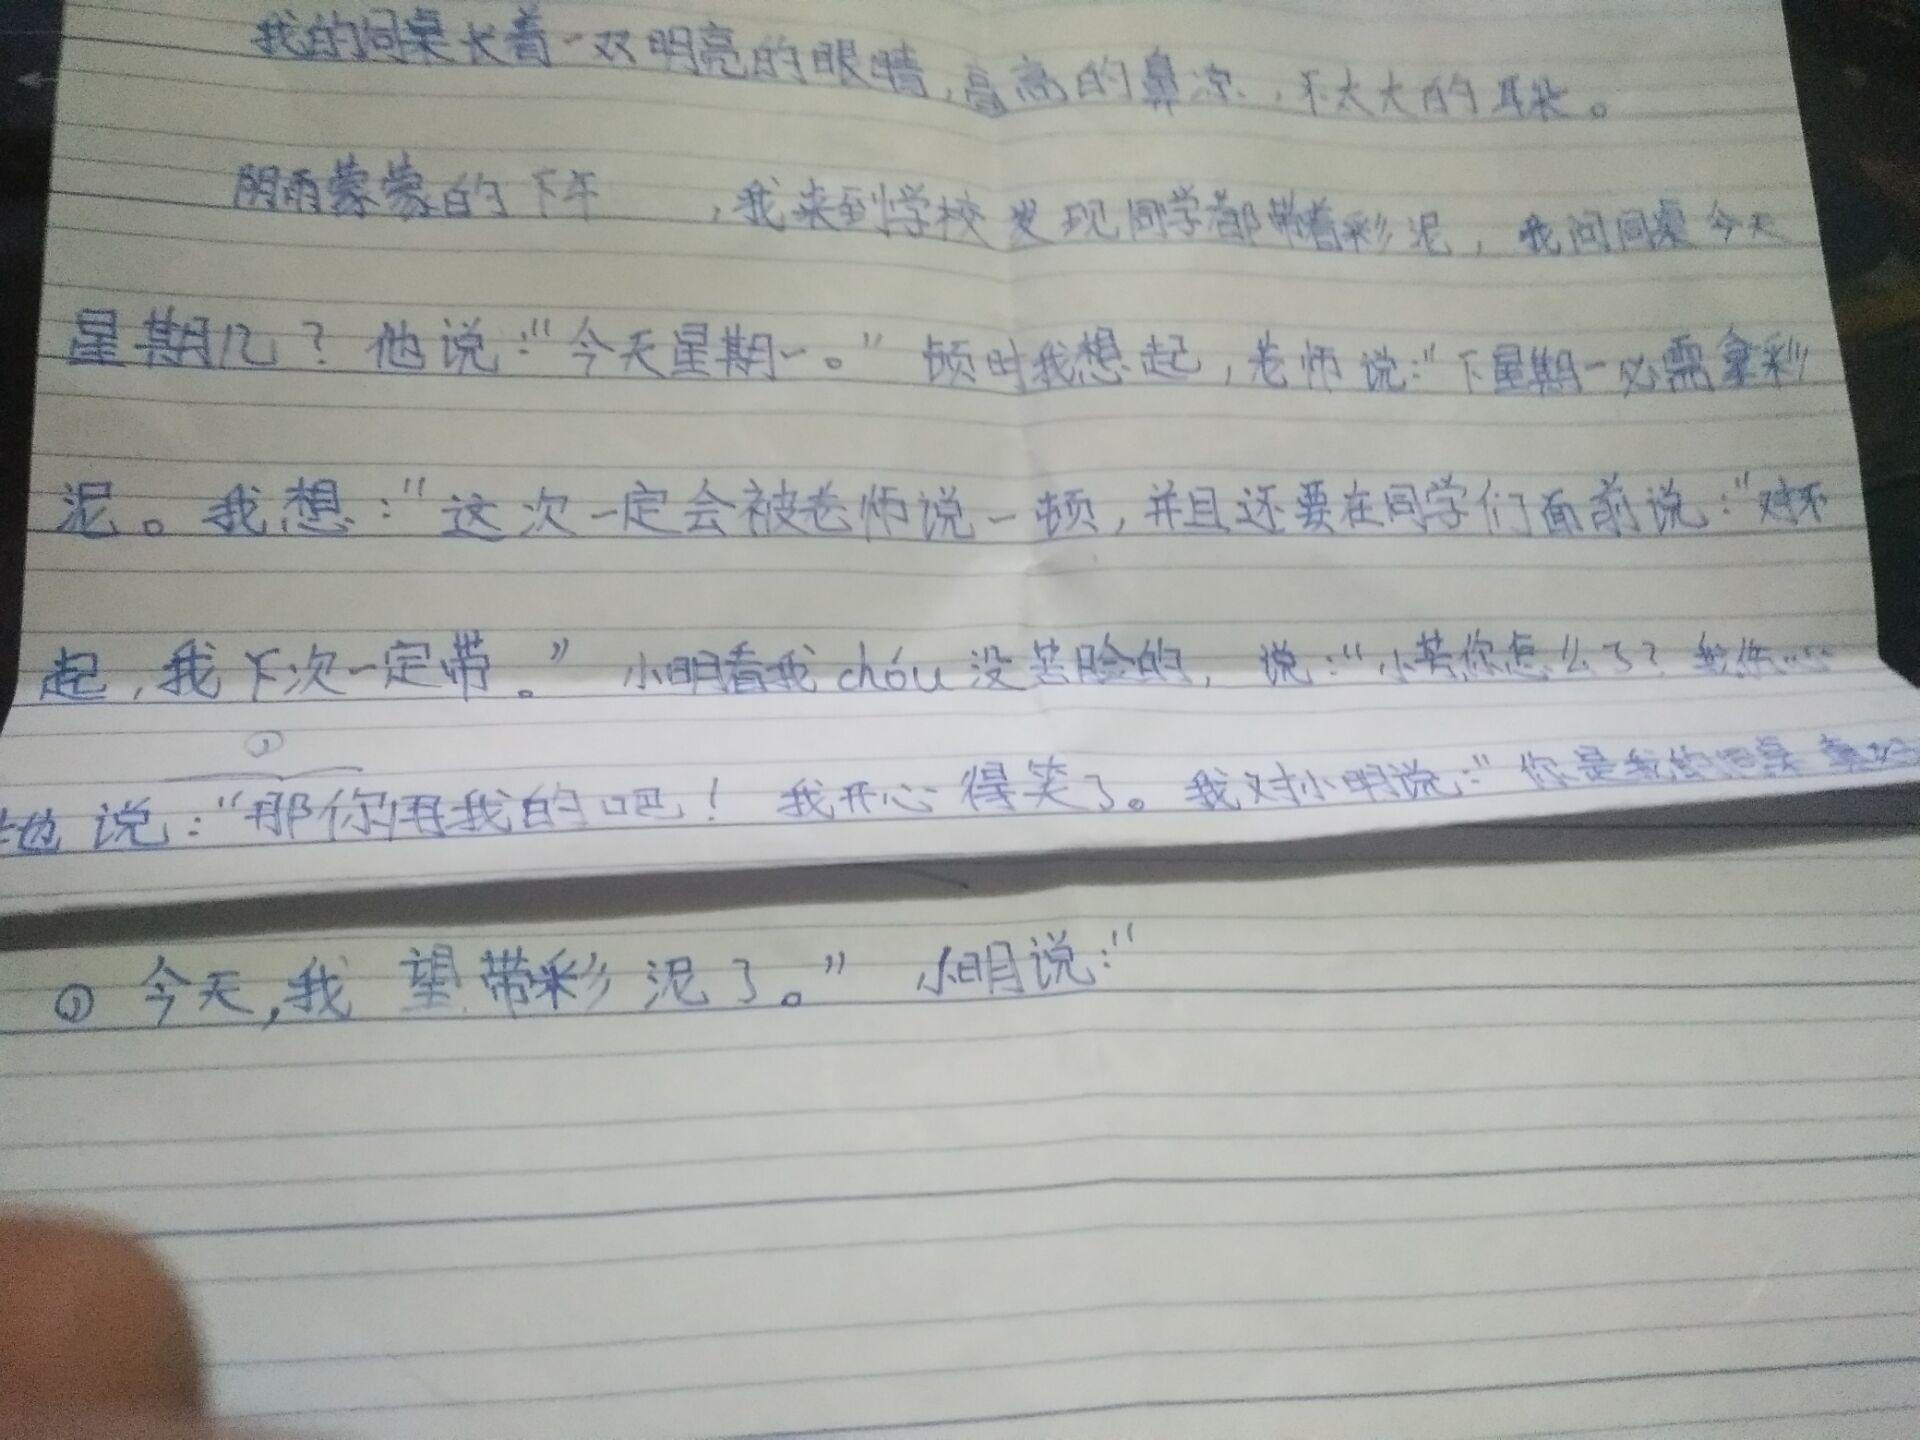 我的同桌长着一双明亮的眼睛，高高的鼻凉，不太大的耳朵。
阴雨蒙蒙的下午，我来到学校发现同学都带着彩泥，我问同桌今天
星期几？他说：“今天星期一。”顿时我想起，老师说：“下星期一必需拿彩
泥。我想：“这次一定会被老师说一顿，并且还要在同学们面前说：“对不
起，我下次一定带。”小明看我chóu没苦脸的，说：“小英你怎么了？我伤心
地说：“那你用我的吧！我开心得笑了。我对小明说：“你是我的同桌真好
① 今天，我望带彩泥了。”小明说：“